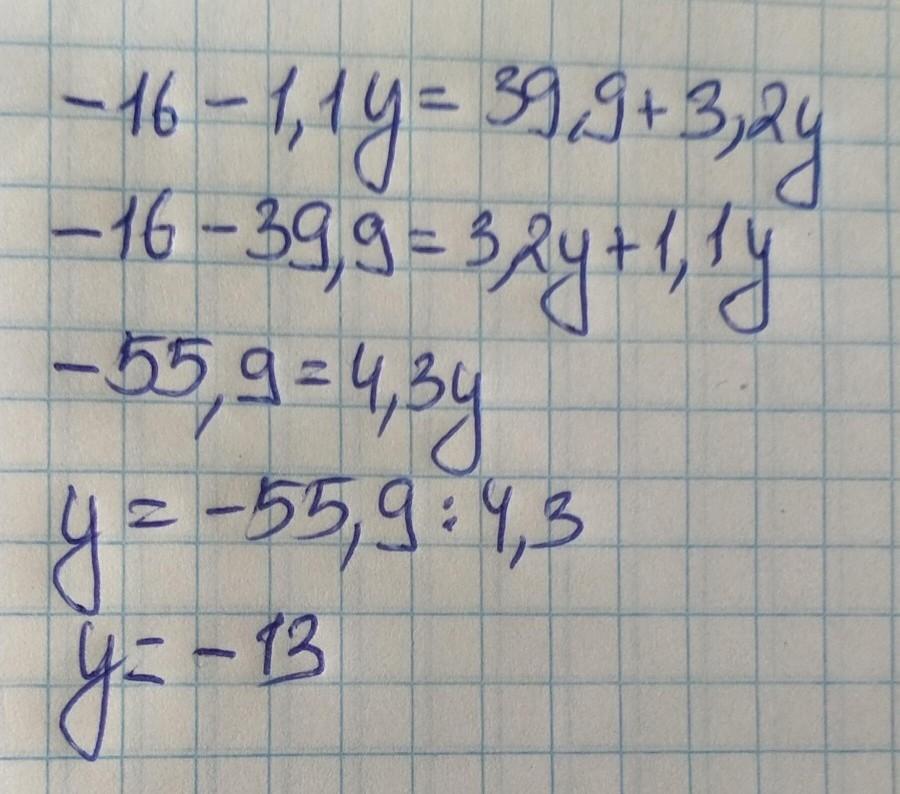 -16-1,1y=39,9+3,2y
-16-39,9=3,2y+1,1y
-55,9=4,3y
y=-55,9:4,3
y=-13